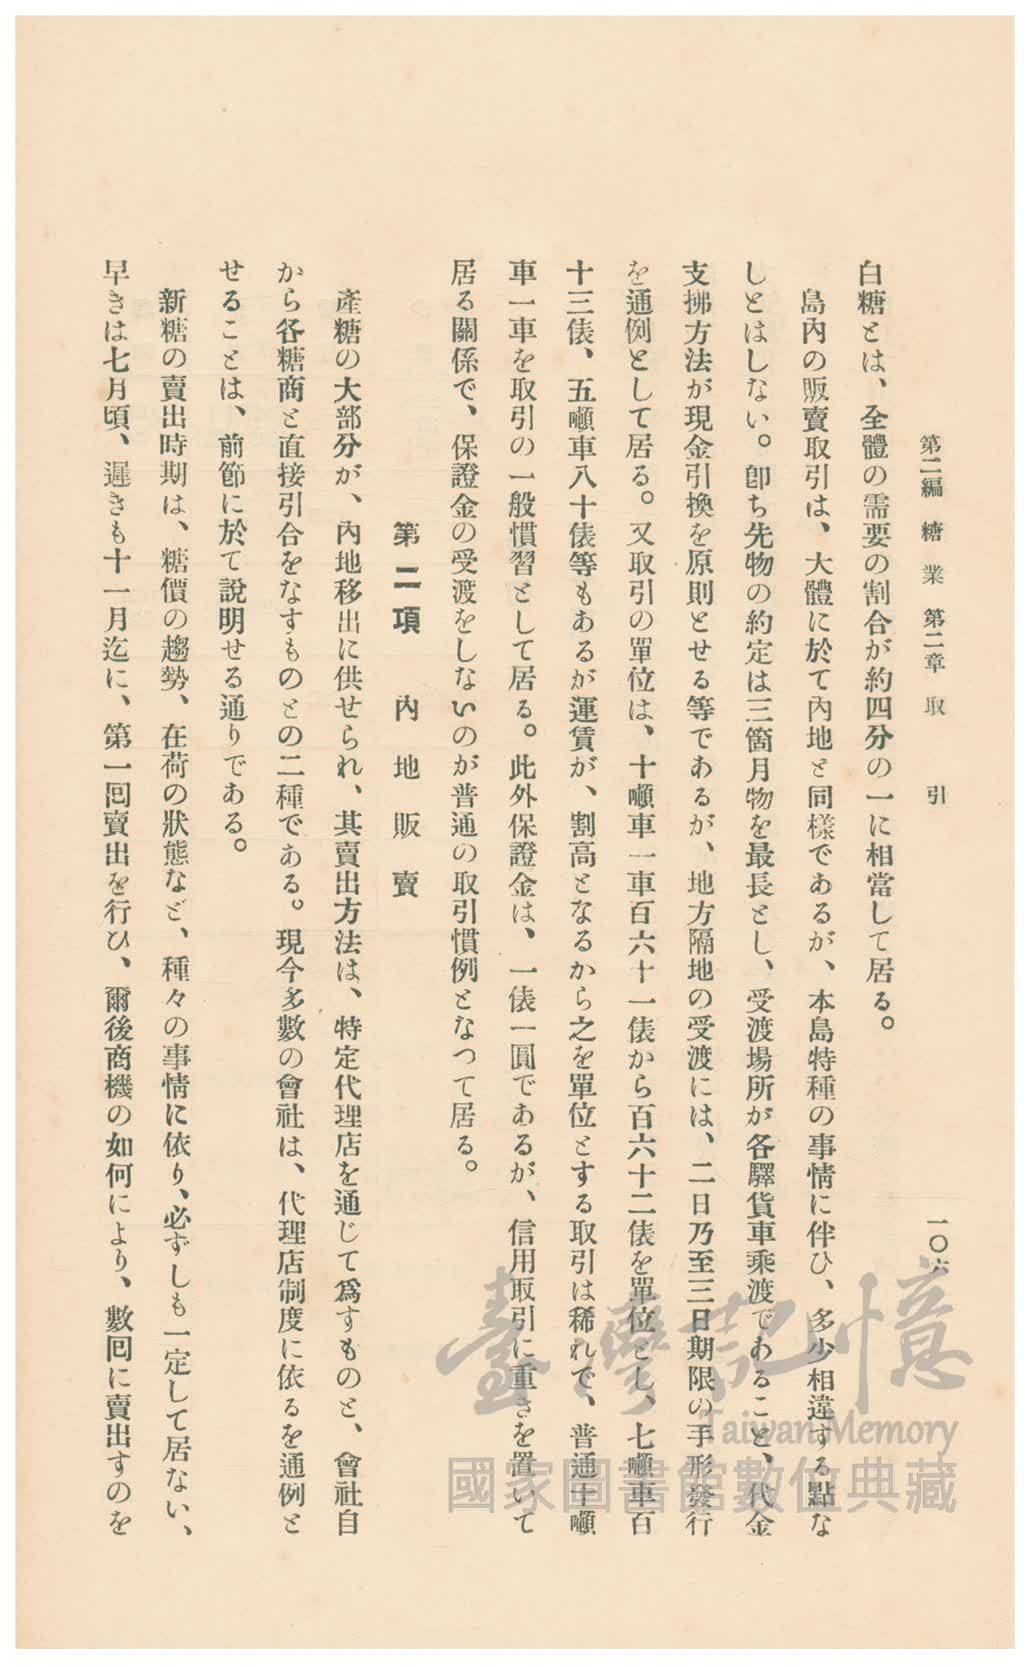 第二編 糖業 第二章 取引
一〇六
白糖とは、全體の需要の割合が約四分の一に相當して居る。
島內の販賣取引は、大體に於て內地と同樣であるが、本島特種の事情に伴ひ、多少相違する點な
しとはしない。卽ち先物の約定は三箇月物を最長とし、受渡場所が各驛貨車乘渡であること、代金
支拂方法が現金引換を原則とせる等であるが、地方隔地の受渡には、二日乃至三日期限の手形發行
を通例として居る。又取引の單位は、十噸車一車百六十一俵から百六十二俵を單位とし、七噸車百
十三俵、五噸車八十俵等もあるが運賃が、割高となるから之を單位とする取引は稀れで、普通十噸
車一車を取引の一般慣習として居る。此外保證金は、一俵一圓であるが、信用取引に重きを置いて
居る關係で、保證金の受渡をしないのが普通の取引慣例となつて居る。
第二項 內地販賣
產糖の大部分が、內地移出に供せられ、其賣出方法は、特定代理店を通じて爲すものと、會社自
から各糖商と直接引合をなすものとの二種である。現今多數の會社は、代理店制度に依るを通例と
せることは、前節に於て說明せる通りである。
新糖の賣出時期は、糖價の趨勢、在荷の狀態など、種々の事情に依り、必ずしも一定して居ない、
早きは七月頃、遲きも十一月迄に、第一囘賣出を行ひ、爾後商機の如何により、數囘に賣出すのを
臺灣記憶
Taiwan Memory
國家圖書館數位典藏